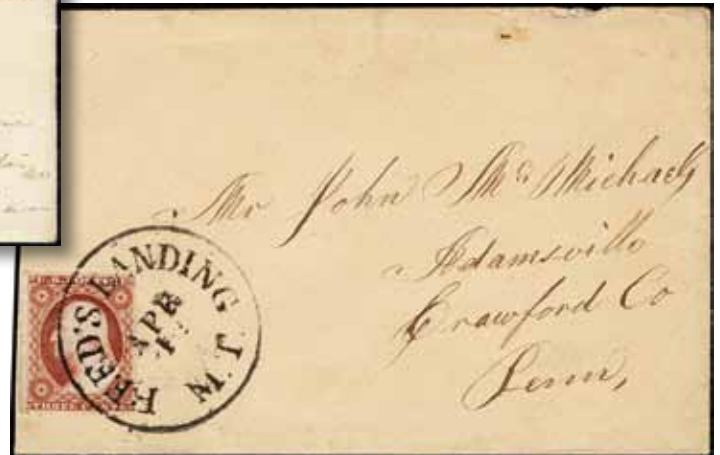 Mr John Mc Michael
Adamsville
Crawford Co
Penn,
REED'S LANDING M.T.
APR
THREE CENTS